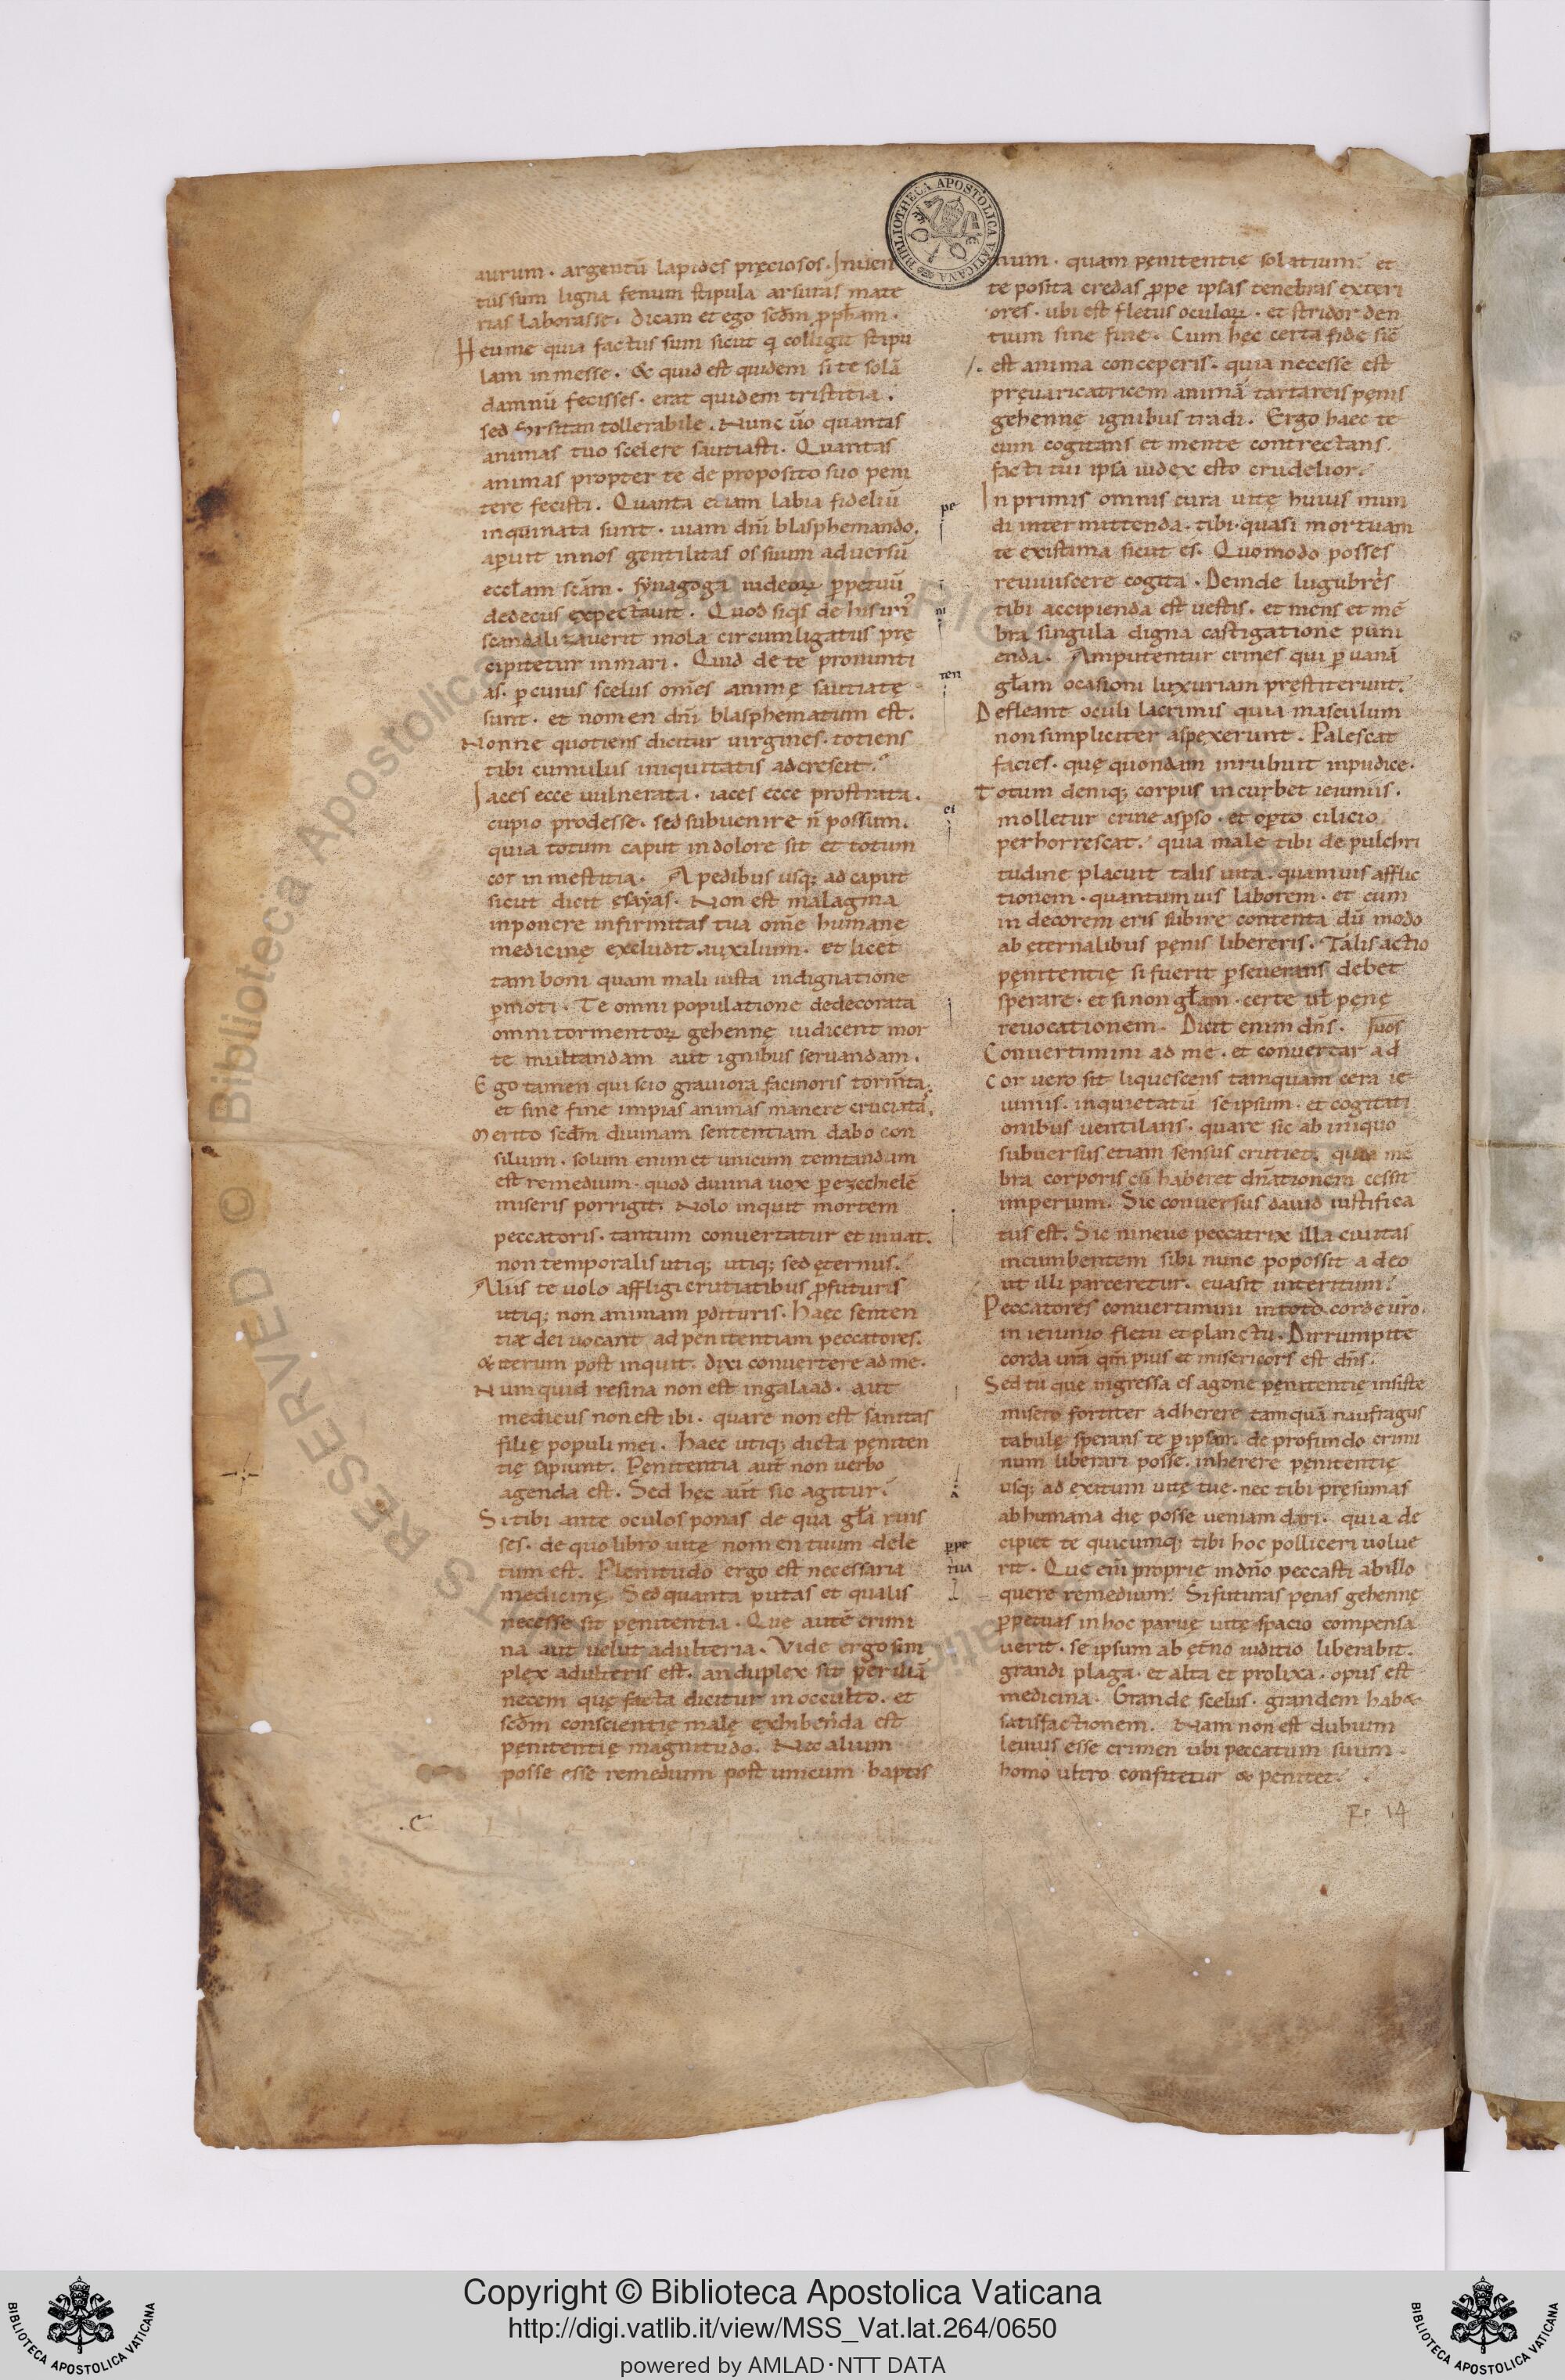 aurum. argentū lapides pręciosos. Inuen
tus sum ligna fenum stipula arsuras mate
rias laborasse. dicam et ego scdm ppham.
Heu me quia factus sum sicut q colligit stipu
lam in messe. & quid est quidem si te solā
damnū fecisses. erat quidem tristitia.
sed forsitan tollerabile. Nunc ūo quantas
animas tuo scelere sauciasti. Quantas
animas propter te de proposito suo peni
tere fecisti. Quanta etiam labia fideliū
inquinata sunt. uiam dnī blasphemando.
aperuit in nos gentilitas os suum aduersū
eccłam scām. synagoga iudeoꝝ ppetuū
dedecus expectauit. Quod siqs de his
scandalizauerit mola circumligatus pre
cipitetur in mari. Quid de te pronunti
as. p cuius scelus om̄es animę sauciatę
sunt. et nomen dnī blasphematum est.
Nonne quotiens dicitur uirgines. totiens
tibi cumulus iniquitatis adcrescit.
Iaces ecce uulnerata. iaces ecce prostrata.
cupio prodesse. sed subuenire n̄ possum.
quia totum caput in dolore sit et totum
cor in mestitia. A pedibus usq; ad caput
sicut dicit esayas. Non est malagma
inponere infirmitas tua om̄e humane
medicinę excludit auxilium. et licet
tam boni quam mali iusta indignatione
pmoti. Te omni populatione dedecorata
omni tormentoꝝ gehennę iudicent mor
te multandam aut ignibus seruandam.
Ego tamen qui scio grauiora facinoris torm̄ta.
et sine fine impias animas manere cruciatā.
Merito scdm diuinam sententiam dabo con
silium. solum enim et unicum temtandam
est remedium. quod diuina uox p ezechielē
miseris porrigit. Nolo inquit mortem
peccatoris. tantum conuertatur et uiuat.
non temporalis utiq; utiq; sed ęternus.
Aliis te uolo affligi crutiatibus pfuturis
utiq; non animam pdituris. haec senten
tiæ dei uocant ad penitentiam peccatores.
& iterum post inquit. dixi conuertere ad me.
Numquid resina non est in galaad. aut
medicus non est ibi. quare non est sanitas
filię populi mei. haec utiq; dicta pęniten
tię sapiunt. Penitentia aut̄ non uerbo
agenda est. Sed hęc aut̄ sic agitur.
Si tibi ante oculos ponas de qua głā ruis
ses. de quo libro uitę nomen tuum dele
tum est. Plenitudo ergo est necessaria
medicinę. Sed quanta putas et qualis
necesse sit penitentia. Que autē crimi
na aut uelut adulteria. Vide ergo sim
plex adulteris est. an duplex sit per illā
necem quę facta dicitur in occulto. et
scdm conscientię malę exhibenda est
pęnitentię magnitudo. Nec alium
posse esse remedium post unicum baptis
.C
num. quam pęnitentię solatium. et
te posita credas ppe ipsas tenebras exteri
ores. ubi est fletus oculoꝝ. et stridor den
tium sine fine. Cum hęc certa fide
est anima conceperis. quia necesse est
pręuaricatricem animā tartareis pęnis
gehennę ignibus tradi. Ergo haec te
cum cogitans et mente contrectans.
facti tui ipsa iudex esto crudelior.
In primis omnis cura uitę huius mun
di intermittenda. tibi. quasi mortuam
te existima sicut es. Quomodo posses
reuiuiscere cogita. Deinde lugubres
tibi accipienda est uestis. et mens et mē
bra singula digna castigatione puni
enda. Amputentur crines qui p uanā
głam ocasioni luxuriam pręstiterunt.
Defleant oculi lacrimis quia masculum
non simpliciter aspexerunt. Palescat
facies. quę quondam inrubuit inpudice.
Totum deniq; corpus incurbet ieiuniis.
molletur crine asperso. et opto cilicio
perhorrescat. quia male tibi de pulchri
tudine placuit talis uita. quamuis afflic
tionem. quantumuis laborem. et cum
in decorem eris subire contenta dū modo
ab eternalibus pęnis libereris. Talis actio
pęnitentię si fuerit pseuerans debet
sperare. et si non głam. certe uł pęnę
reuocationem. Dicit enim dn̄s.
Conuertimini ad me. et conuertar ad uos
Cor uero sit liquescens tamquam cera ie
iuniis. inquietatū se ipsum. et cogitati
onibus uentilans. quare sic ab iniquo
subuersus etiam sensus crutiet. quia mē
bra corporis cū haberet dn̄ationem cessit
imperium. Sic conuersus dauid iustifica
tus est. Sic nineue peccatrix illa ciuitas
incumbentem sibi nunc popossit a deo
ut illi parceretur. euasit interitum.
Peccatores conuertimini in toto corde ur̄o.
in ieiunio fletu et planctu. Dirrumpite
corda ur̄a qm̄ pius et misericors est dn̄s.
Sed tu que ingressa es agone pęnitentię insiste
misero fortiter adherere tamquā naufragus
tabulę sperans te p ipsam de profundo crimi
num liberari posse. inherere pęnitentię
usq; ad exitum uitę tuę. nec tibi pręsumas
ab humana die posse ueniam dari. quia de
cipiet te quicumq; tibi hoc polliceri uolue
rit. Que enī proprie in dn̄o peccasti ab illo
quere remedium. Si futuras pęnas gehennę
ppetuas in hoc paruę uitę spacio compensa
uerit. se ipsum ab et̄no iuditio liberabit.
grandi plaga. et alta et prolixa. opus est
medicina. Grande scelus. grandem habæ
satisfactionem. Nam non est dubium
leuius esse crimen ubi peccatum suum
homo ultro confitetur & penitet.
Fr 14
BIBLIOTHECA APOSTOLICA VATICANA
© Biblioteca Apostolica Vaticana
Copyright © Biblioteca Apostolica Vaticana
http://digi.vatlib.it/view/MSS_Vat.lat.264/0650
powered by AMLAD·NTT DATA
BIBLIOTECA APOSTOLICA VATICANA
BIBLIOTECA APOSTOLICA VATICANA